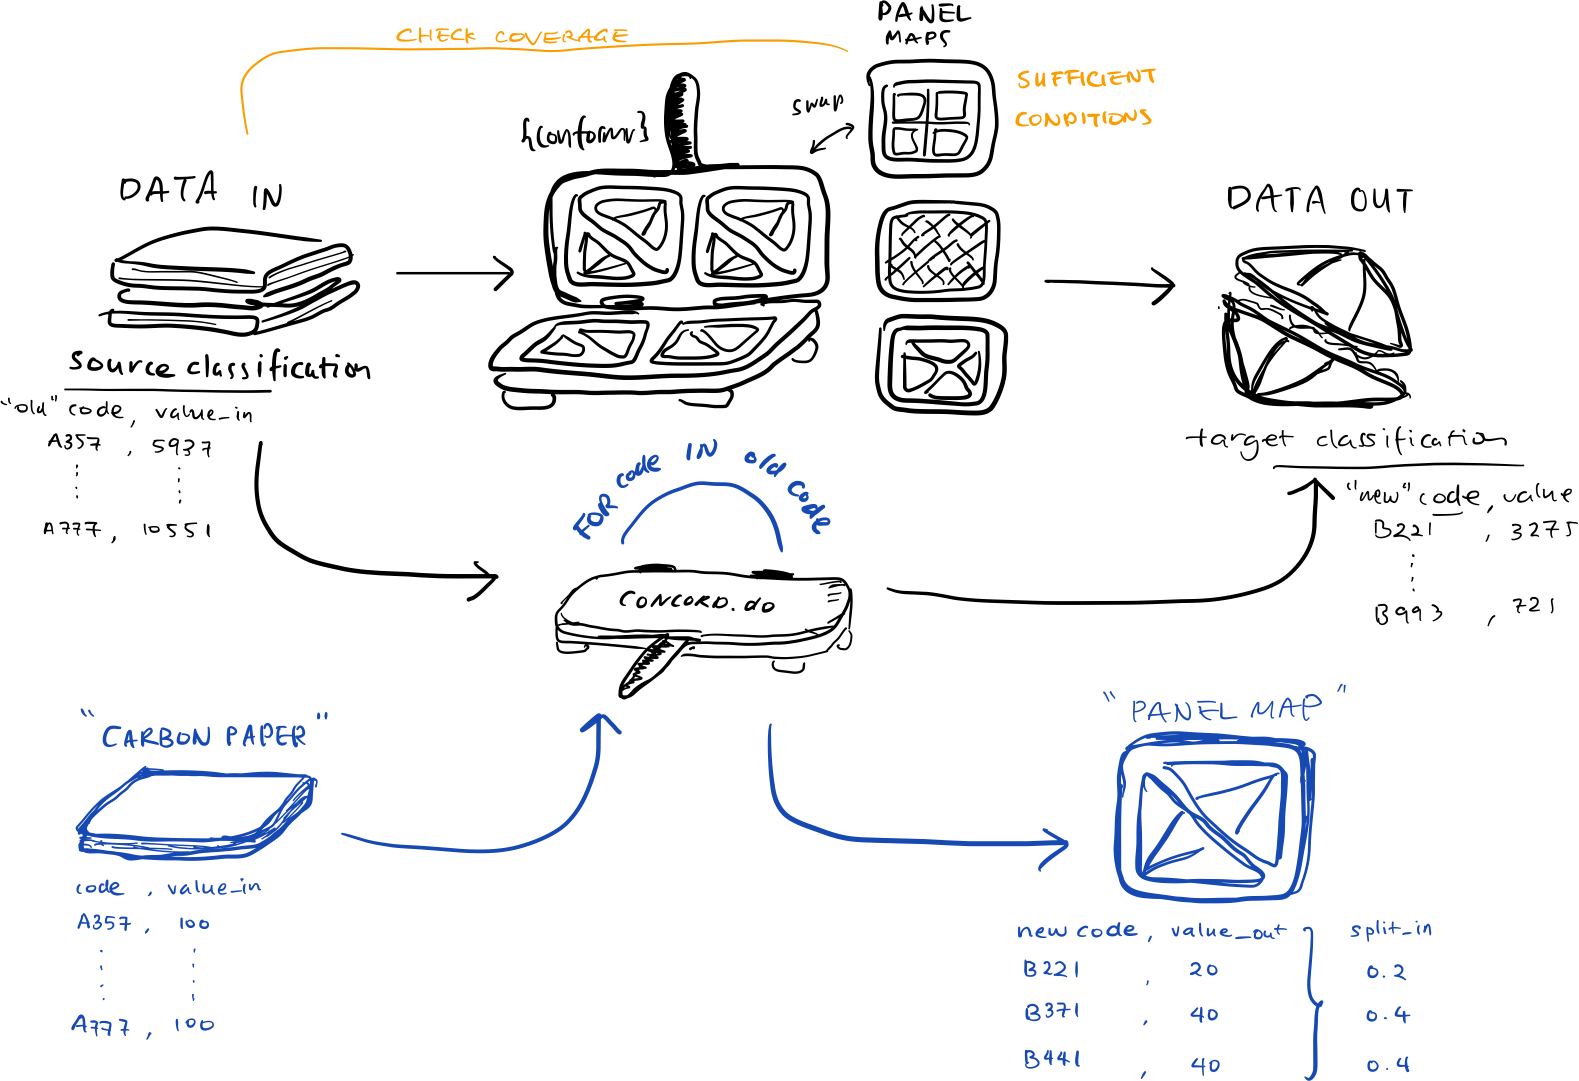 CHECK COVERAGE
PANEL
MAPS
SUFFICIENT
CONDITIONS
swap
{conformr}
DATA IN
DATA OUT
source classification
"old" code, value_in
A357, 5937
A777, 10551
target classification
"new" code, value
B221, 3275
B993, 721
FOR code IN old code
CONCORD.do
"CARBON PAPER"
code, value_in
A357, 100
A777, 100
"PANEL MAP"
new code, value_out } split_in
B221, 20 0.2
B371, 40 0.4
B441, 40 0.4